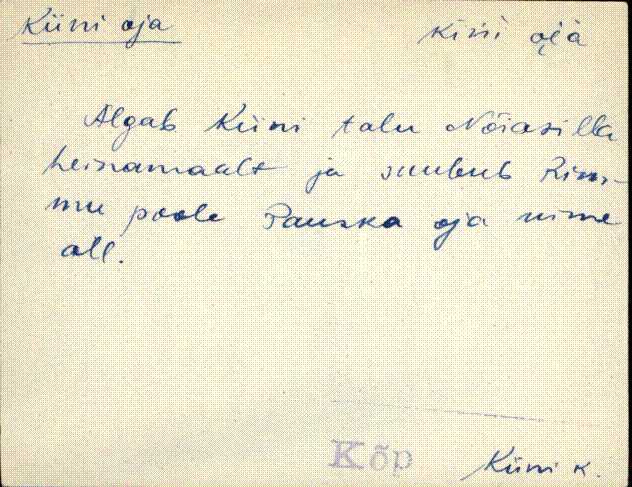 Kiini oja
kini oja
Algab Kiini talu Nõiasilla
heinamaalt ja suubub Rim-
mu poole Pauska oja nime
all.
Kõp
Kiini k.